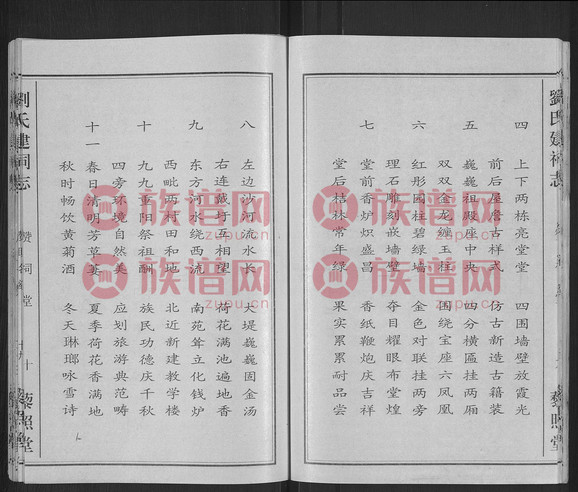 劉氏建祠志
藜照堂
四 上下两栋亮堂堂 四围墙壁放霞光
前后屋詹古样式 仿古新造古籍装
五 巍巍祖殿座中央 四分横匾横梁
双双金龙缠玉柱 围绕宝座六凤凰
六 红彤圆柱碧绿墙 金色对联挂两旁
理石雕刻嵌墙壁 夺目耀眼布堂煌
七 堂前香炉炽盛昌 香纸鞭炮庆吉祥
堂后桔林常年绿 果实累累耐品尝
八 左边沙河流水长 大堤巍巍固金汤
右连藏圩互相望 荷花满池遍地香
九 东方河水绕西流 南苑耸立化钱炉
西毗两村田和地 北近新建教学楼
十 九九重阳祭祖酬 族民功德庆千秋
四旁环境自然美 应划旅游典范畴
十一 春日清明芳草萋 夏季荷花香满地
秋时畅饮黄菊酒 冬天琳瑯咏雪诗
劉氏建祠志
赞祠堂
藜照堂
族谱网
zupu.cn